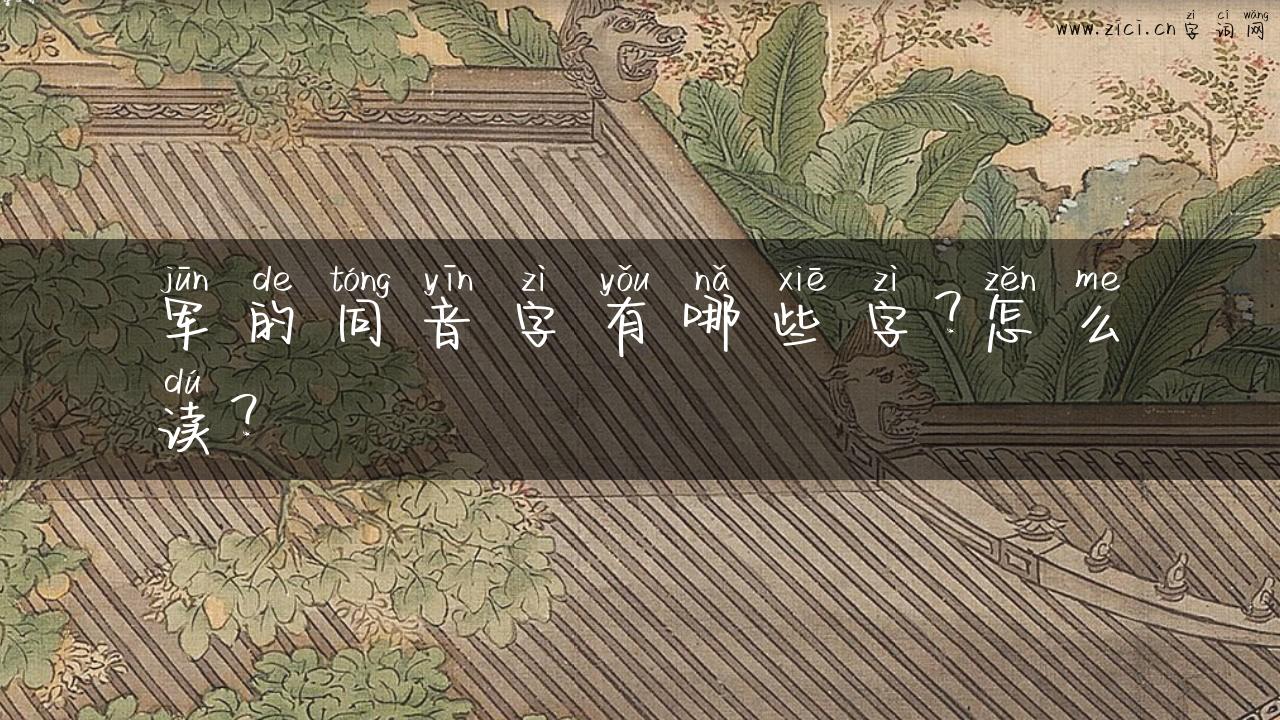 zì cí wǎng
www.zici.cn 字词网
jūn de tóng yīn zì yǒu nǎ xiē zì zěn me
军的同音字有哪些字?怎么
dú
读?